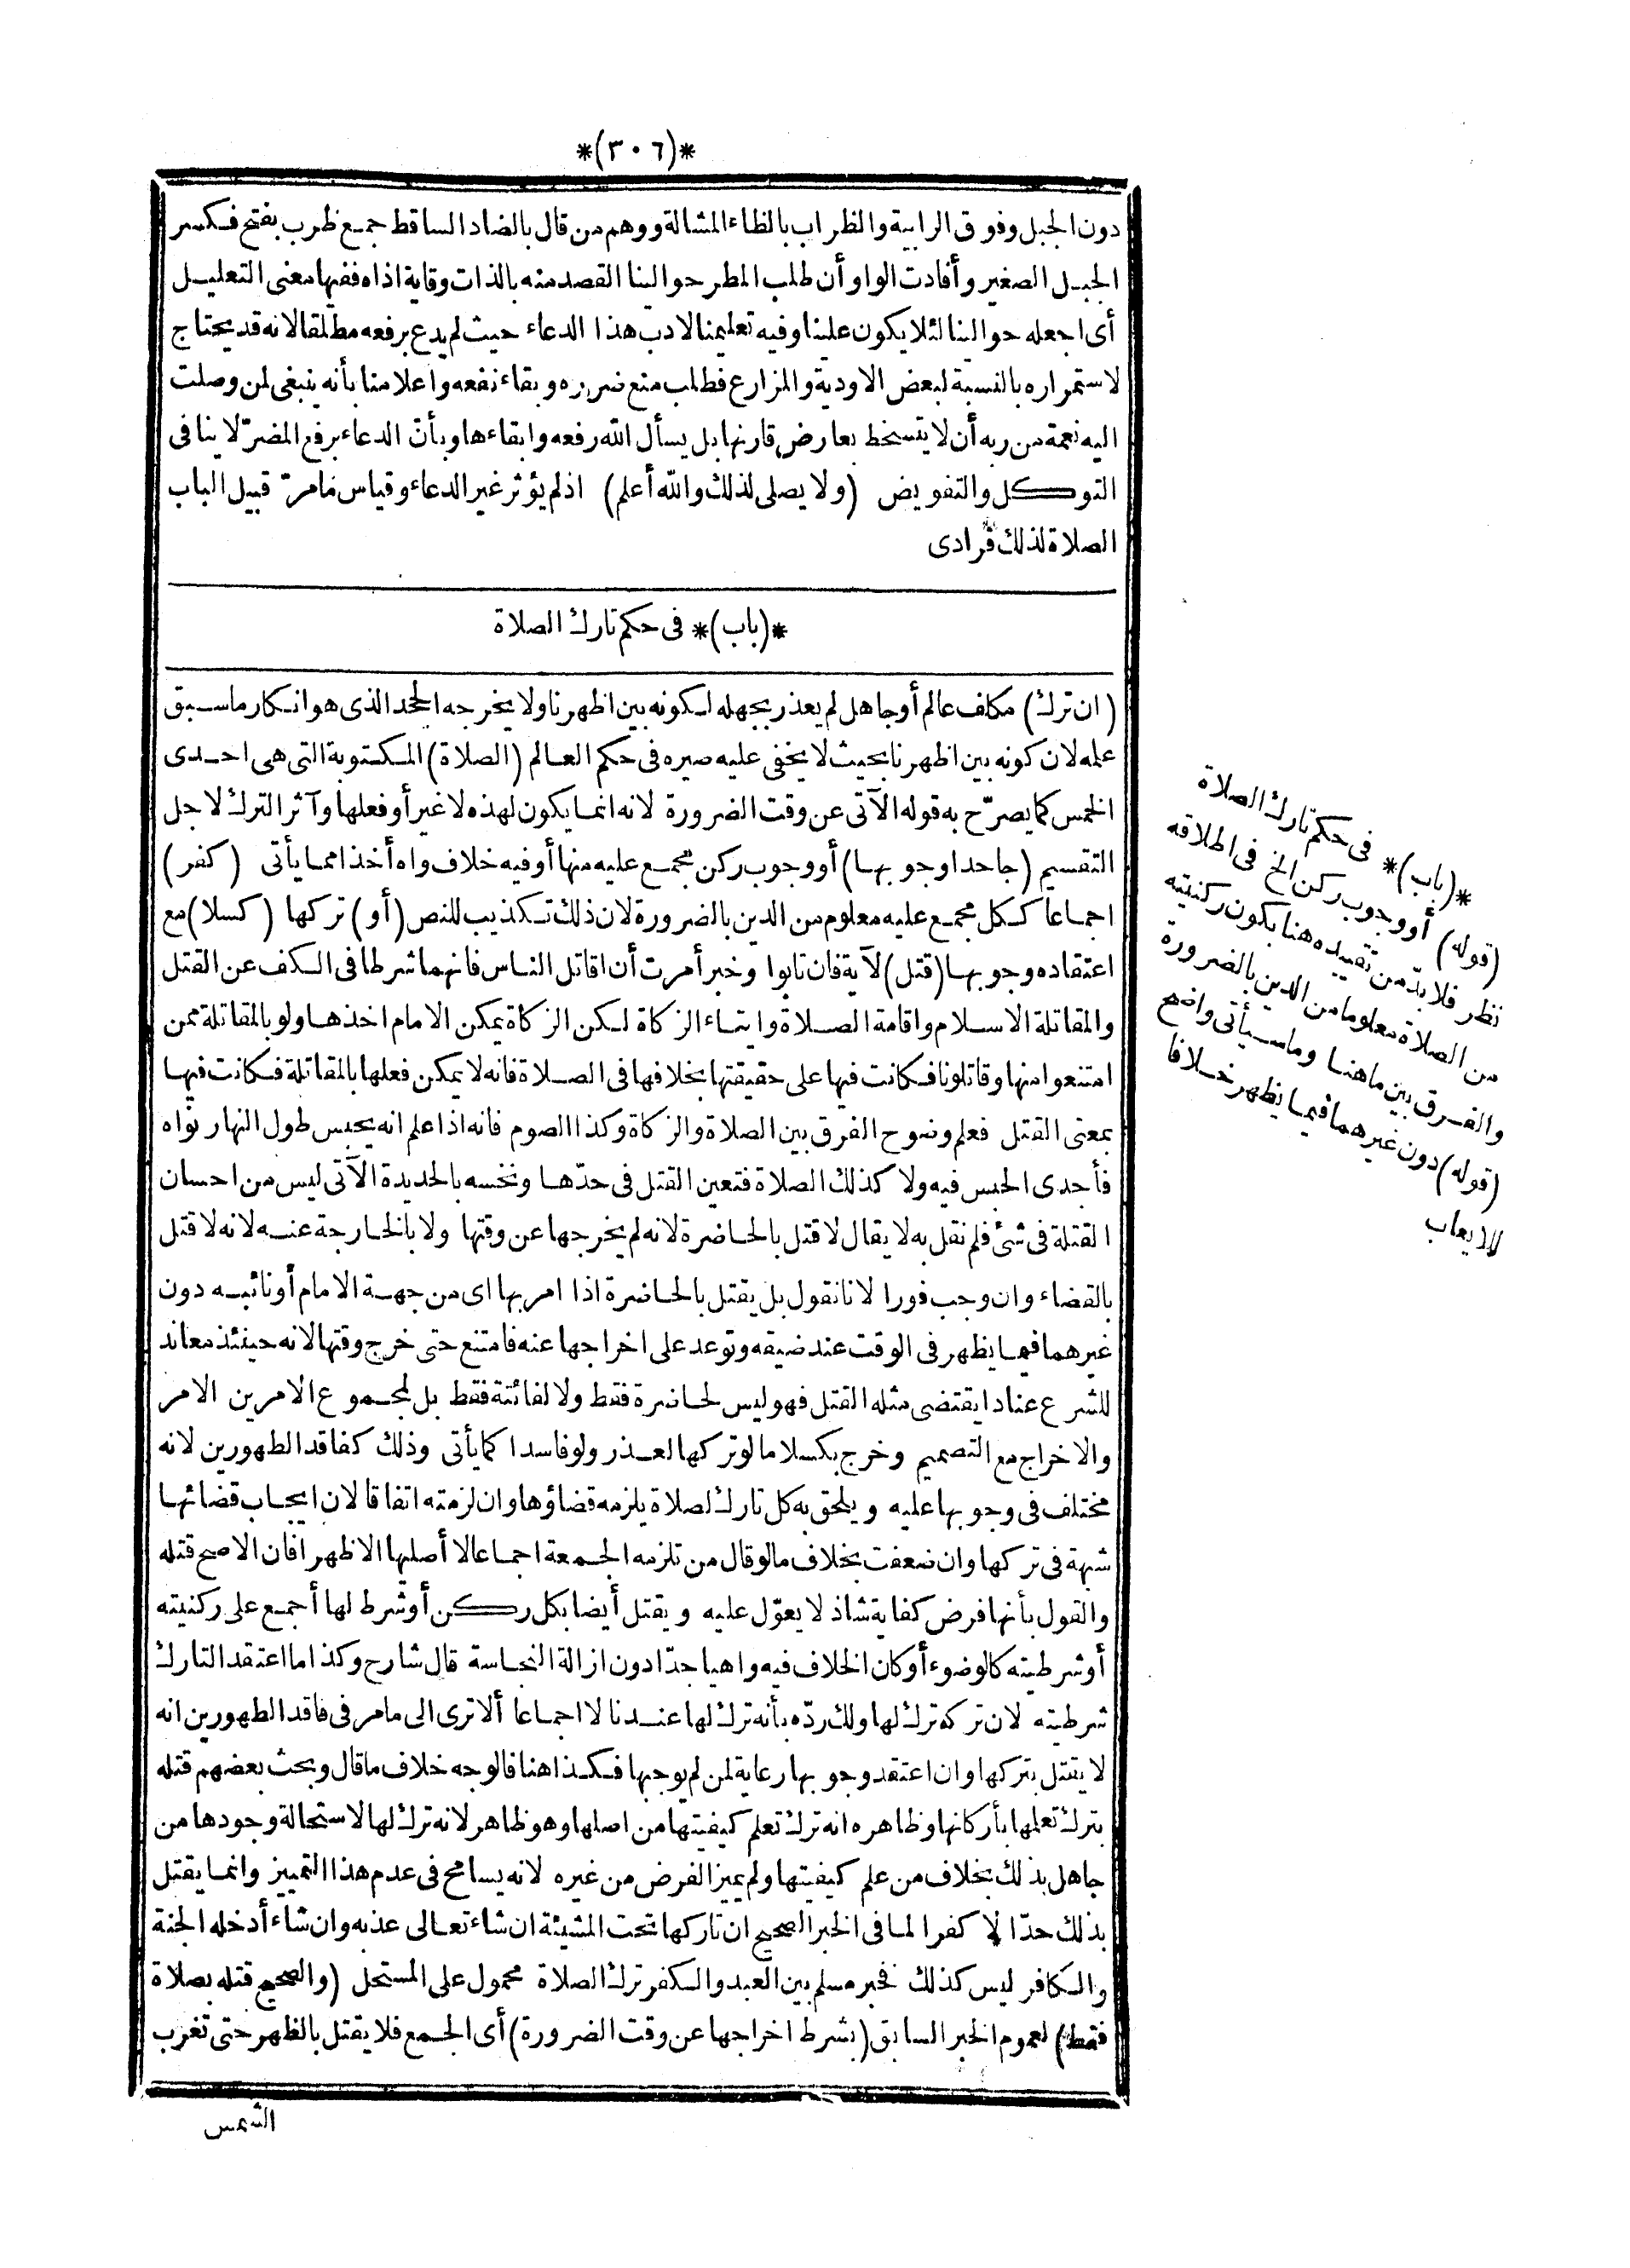 *(٣٠٦)*
دون الجبل وفوق الرابية والظراب بالظاء المشالة ووهم من قال بالضاد الساقط جمع ظرب بفتح فكسر
الجبل الصغير وأفادت الواو أن طلب المطر حوالينا القصد منه بالذات وقاية اذاه ففيها معنى التعليل
أى اجعله حوالينا لئلا يكون علينا وفيه تعليمنا لادب هذا الدعاء حيث لم يدع برفعه مطلقا لانه قد يحتاج
لاستمراره بالنسبة لبعض الاودية والمزارع فطلب منع ضرره وبقاء نفعه واعلامنا بأنه ينبغى لمن وصلت
اليه نعمة من ربه أن لا يتسخط بعارض قارنها بل يسأل الله رفعه وابقاءها وبأن الدعاء برفع المضر لا ينافى
التوكل والتفويض (ولا يصلى لذلك والله أعلم) اذ لم يؤثر غير الدعاء وقياس مامر قبيل الباب
الصلاة لذلك فرادى
*(باب)* فى حكم تارك الصلاة
(ان ترك) مكلف عالم أو جاهل لم يعذر بجهله لكونه بين اظهرنا ولا يخرجه الجحد الذى هو انكار ما سبق
علمه لان كونه بين اظهرنا بحيث لا يخفى عليه صيره فى حكم العالم (الصلاة) المكتوبة التى هى احدى
الخمس كما يصرّح به قوله الآتى عن وقت الضرورة لانه انما يكون لهذه لا غير أو فعلها وآثر الترك لاجل
التقسيم (جاحدا وجوبها) أو وجوب ركن مجمع عليه منها أو فيه خلاف واه أخذا مما يأتى (كفر)
اجماعا ككل مجمع عليه معلوم من الدين بالضرورة لان ذلك تكذيب للنص (أو) تركها (كسلا) مع
اعتقاده وجوبها (قتل) لآية فان تابوا وخبر أمرت أن اقاتل الناس فانهما شرطا فى الكف عن القتل
والمقاتلة الاسلام واقامة الصلاة وايتاء الزكاة لكن الزكاة يمكن الامام اخذها ولو بالمقاتلة ممن
امتنعوا منها وقاتلونا فكانت فيها على حقيقتها بخلافها فى الصلاة فانه لا يمكن فعلها بالمقاتلة فكانت فيها
بمعنى القتل فعلم وضوح الفرق بين الصلاة والزكاة وكذا الصوم فانه اذا علم انه يحبس طول النهار نواه
فأجدى الحبس فيه ولا كذلك الصلاة فتعين القتل فى حدّها ونخسه بالحديدة الآتى ليس من احسان
القتلة فى شئ فلم نقل به لا يقال لا قتل بالحاضرة لانه لم يخرجها عن وقتها ولا بالخارجة عنه لانه لا قتل
بالقضاء وان وجب فورا لانا نقول بل يقتل بالحاضرة اذا امر بها اى من جهة الامام أو نائبه دون
غيرهما فيما يظهر فى الوقت عند ضيقه وتوعد على اخراجها عنه فامتنع حتى خرج وقتها لانه حينئذ معاند
للشرع عنادا يقتضى مثله القتل فهو ليس لحاضرة فقط ولا لفائتة فقط بل لمجموع الامرين الامر
والاخراج مع التصميم وخرج بكسلا ما لو تركها لعذر ولو فاسدا كما يأتى وذلك كفاقد الطهورين لانه
مختلف فى وجوبها عليه ويلحق به كل تارك لصلاة يلزمه قضاؤها وان لزمته اتفاقا لان ايجاب قضائها
شبهة فى تركها وان ضعفت بخلاف ما لو قال من تلزمه الجمعة اجماعا لا أصليها الا ظهرا فان الاصح قتله
والقول بأنها فرض كفاية شاذ لا يعوّل عليه ويقتل أيضا بكل ركن أو شرط لها أجمع على ركنيته
أو شرطيته كالوضوء أو كان الخلاف فيه واهيا جدّا دون ازالة النجاسة قال شارح وكذا ما اعتقد التارك
شرطيته لان تركه ترك لها ولك ردّه بأنه ترك لها عندنا لا اجماعا ألا ترى الى مامر فى فاقد الطهورين انه
لا يقتل بتركها وان اعتقد وجوبها رعاية لمن لم يوجبها فكذا هنا فالوجه خلاف ما قال وبحث بعضهم قتله
بترك تعلمها بأركانها وظاهره انه ترك تعلم كيفيتها من اصلها وهو ظاهر لانه ترك لها لاستحالة وجودها من
جاهل بذلك بخلاف من علم كيفيتها ولم يميز الفرض من غيره لانه يسامح فى عدم هذا التمييز وانما يقتل
بذلك حدّا لا كفرا لما فى الخبر الصحيح ان تاركها تحت المشيئة ان شاء تعالى عذبه وان شاء أدخله الجنة
والكافر ليس كذلك فخبر مسلم بين العبد والكفر ترك الصلاة محمول على المستحل (والصحيح قتله بصلاة
فقط) لعموم الخبر السابق (بشرط اخراجها عن وقت الضرورة) أى الجمع فلا يقتل بالظهر حتى تغرب
الشمس
*(باب)* فى حكم تارك الصلاة
(قوله) أو وجوب ركن الخ فى اطلاقه
نظر فلا بدّ من تقييده هنا بكون ركنيته
من الصلاة معلوما من الدين بالضرورة
والفرق بين ما هنا وما سيأتى واضح
(قوله) دون غيرهما فيما يظهر خلافا
للايعاب